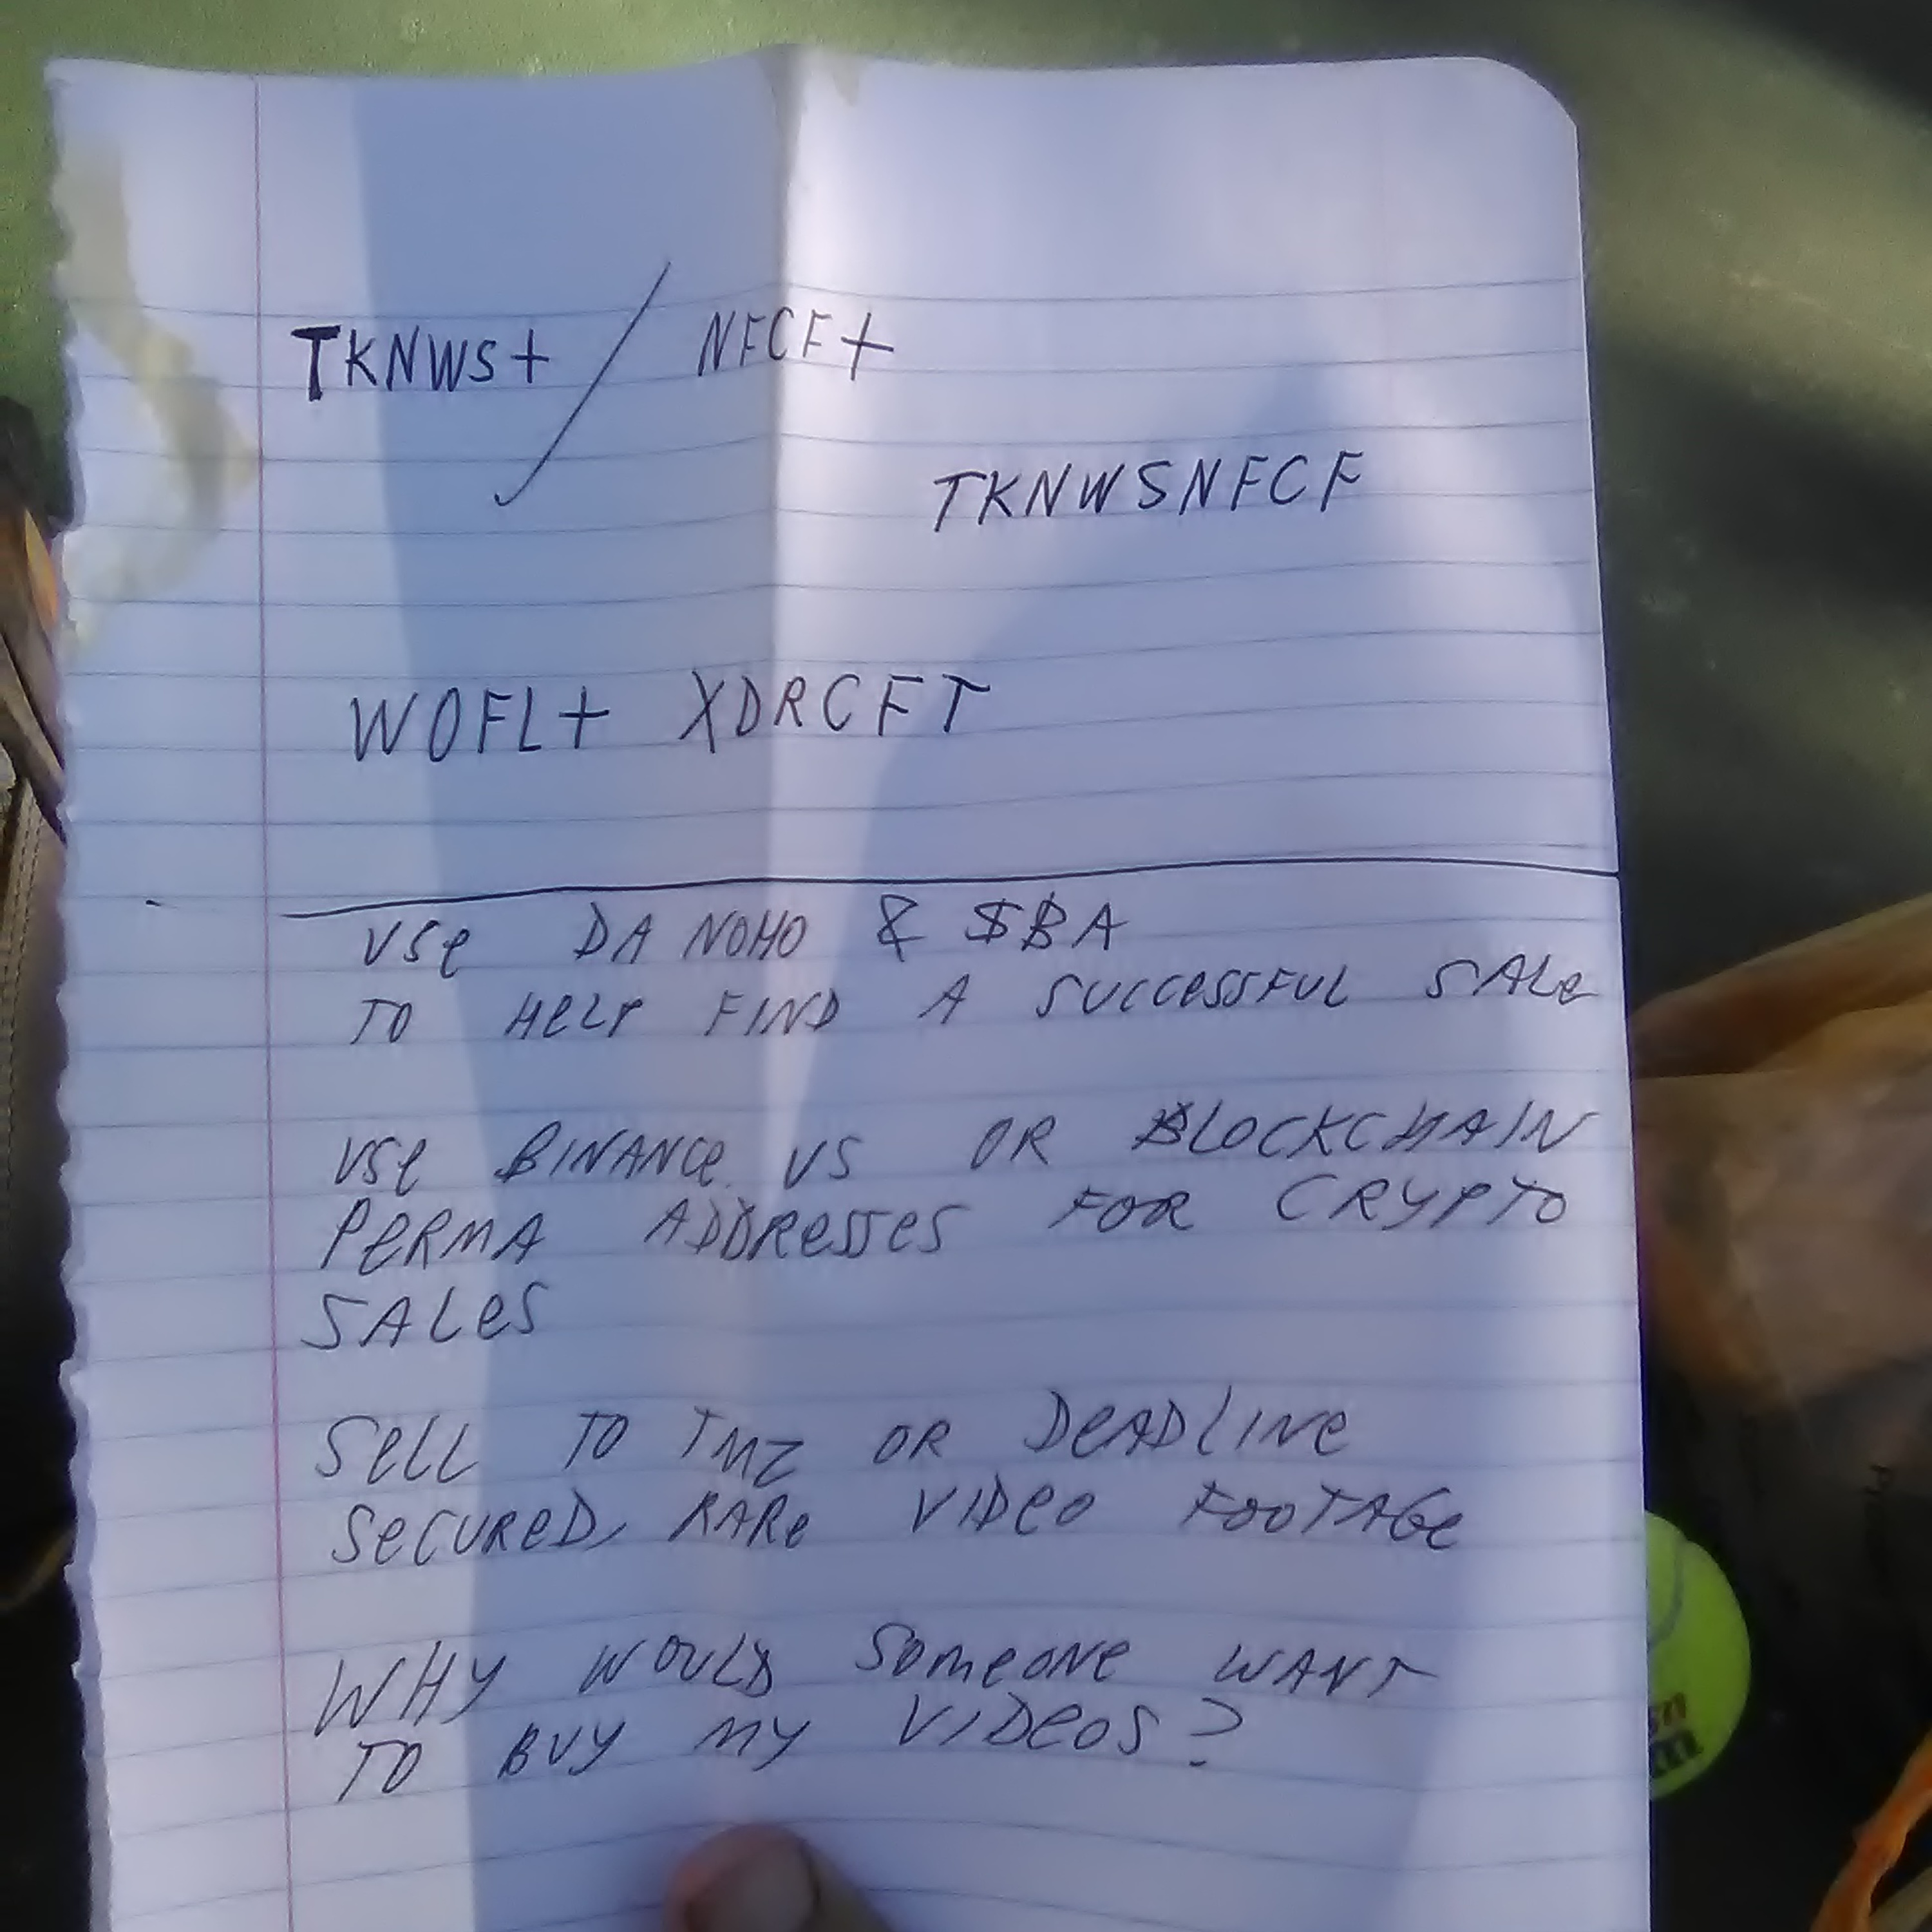 TKNWS+ / NFCF+
TKNWSNFCF
WOFL+ XDRCFT
USe DA NOHO & $BA
TO HeLP FIND A SUCCeSSFUL SALe
USe BINANCe US OR BLOCKCHAIN
PeRMA ADDReSSeS FOR CRYPTO
SALeS
SeLL TO TMZ OR DeADLINe
SeCUReD, RARe VIDeO FOOTAGe
WHY WOULD SOMeONe WANT
TO BUY MY VIDeOS?